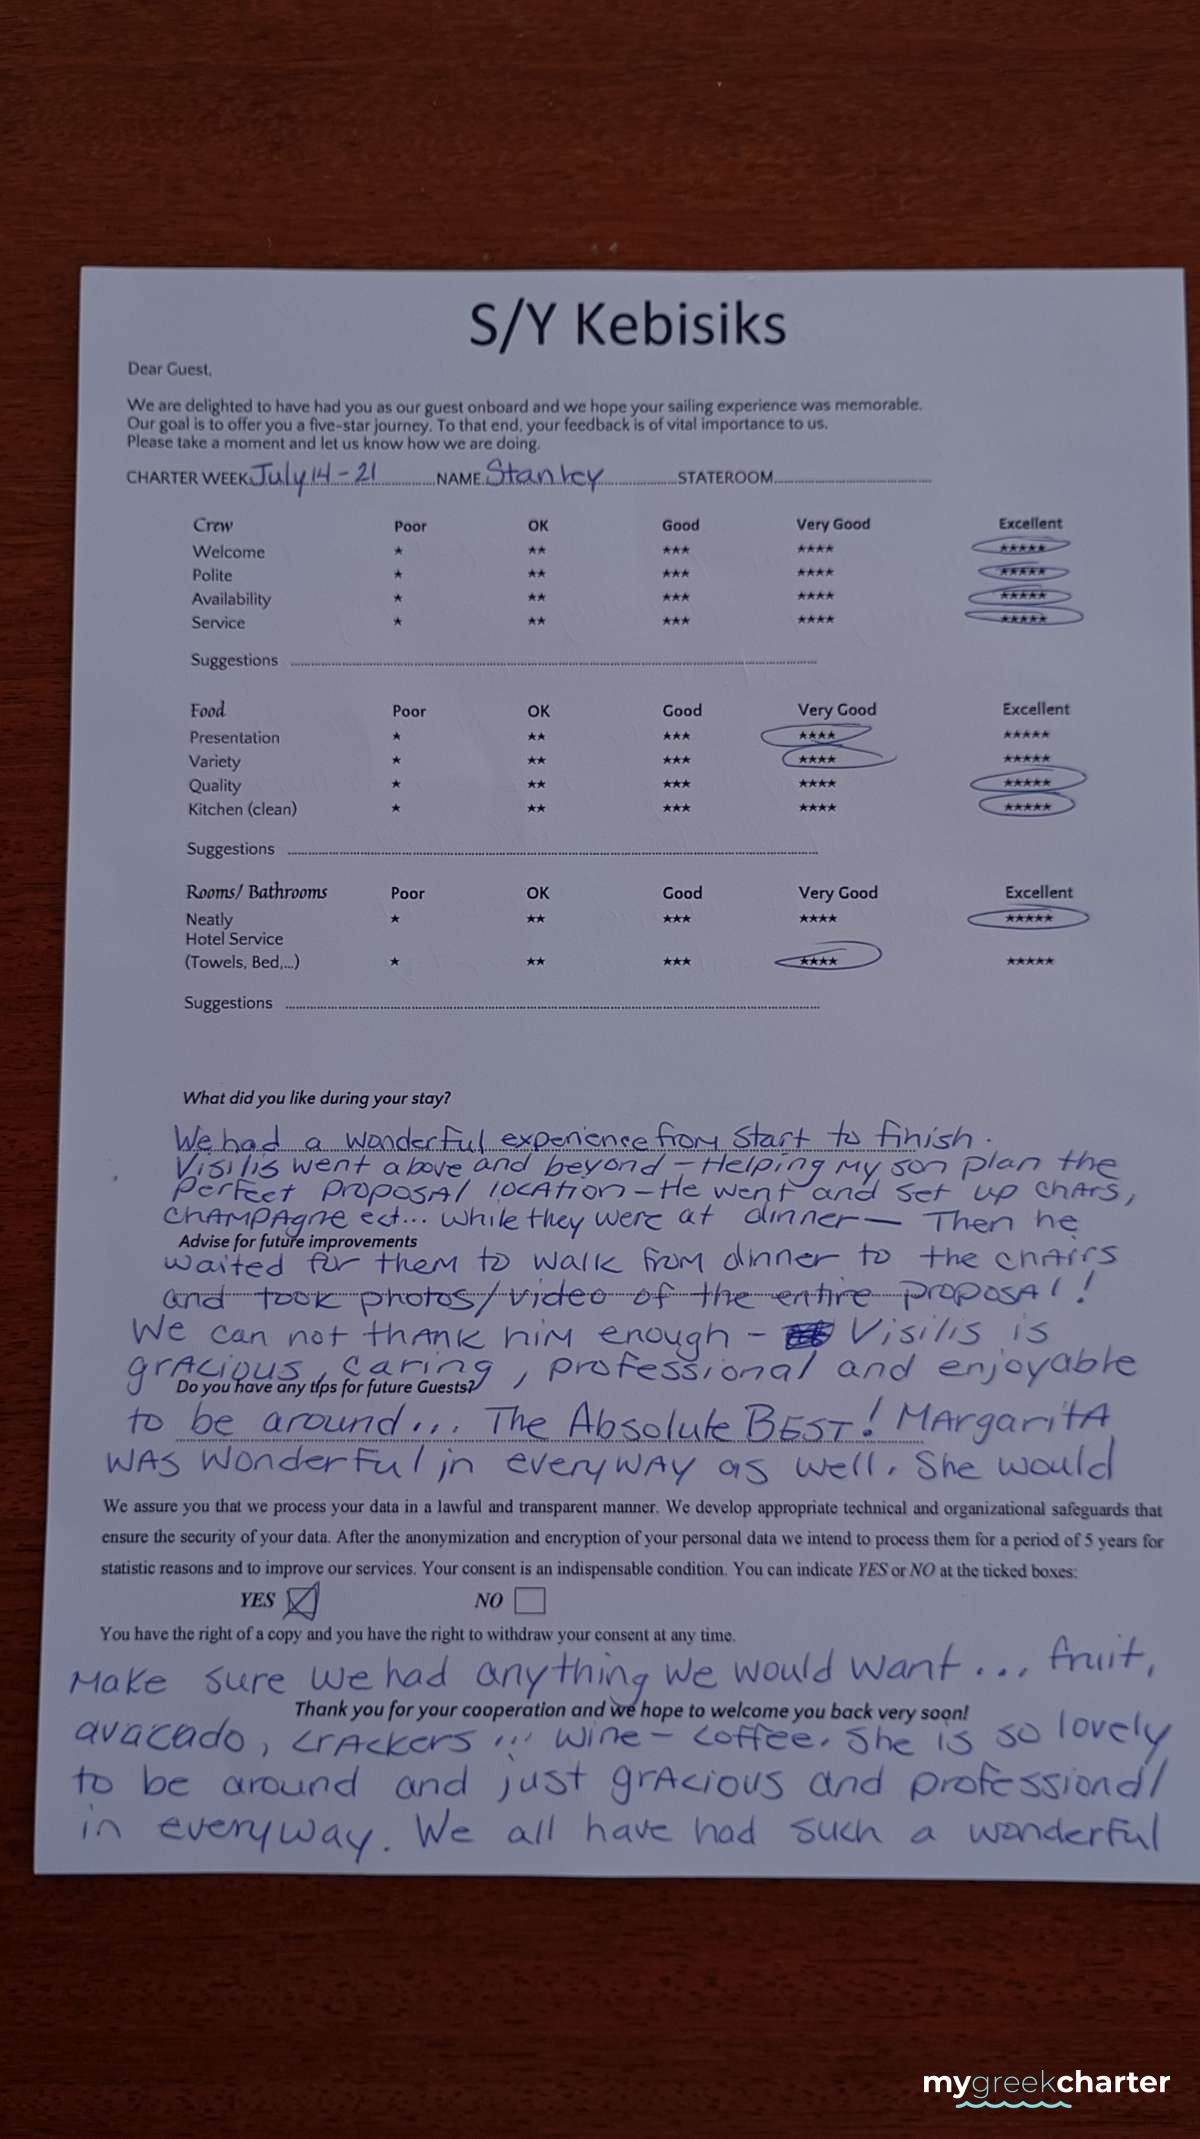 S/Y Kebisiks
Dear Guest,
We are delighted to have had you as our guest onboard and we hope your sailing experience was memorable.
Our goal is to offer you a five-star journey. To that end, your feedback is of vital importance to us.
Please take a moment and let us know how we are doing.
CHARTER WEEK July 14-21 NAME Stanley STATEROOM
Crew Poor OK Good Very Good Excellent
Welcome ★ ★★ ★★★ ★★★★ ★★★★★
Polite ★ ★★ ★★★ ★★★★ ★★★★★
Availability ★ ★★ ★★★ ★★★★ ★★★★★
Service ★ ★★ ★★★ ★★★★ ★★★★★
Suggestions
Food Poor OK Good Very Good Excellent
Presentation ★ ★★ ★★★ ★★★★ ★★★★★
Variety ★ ★★ ★★★ ★★★★ ★★★★★
Quality ★ ★★ ★★★ ★★★★ ★★★★★
Kitchen (clean) ★ ★★ ★★★ ★★★★ ★★★★★
Suggestions
Rooms/ Bathrooms Poor OK Good Very Good Excellent
Neatly ★ ★★ ★★★ ★★★★ ★★★★★
Hotel Service
(Towels, Bed,...) ★ ★★ ★★★ ★★★★ ★★★★★
Suggestions
What did you like during your stay?
We had a wonderful experience from start to finish.
Visilis went above and beyond - Helping my son plan the
perfect proposal location - He went and set up chars,
champagne ect... while they were at dinner — Then he
Advise for future improvements
waited for them to walk from dinner to the chairs
and took photos/video of the entire proposal!
We can not thank him enough - Visilis is
gracious, caring, professional and enjoyable
Do you have any tips for future Guests?
to be around... The Absolute BEST! Margarita
was wonderful in everyway as well. She would
We assure you that we process your data in a lawful and transparent manner. We develop appropriate technical and organizational safeguards that
ensure the security of your data. After the anonymization and encryption of your personal data we intend to process them for a period of 5 years for
statistic reasons and to improve our services. Your consent is an indispensable condition. You can indicate YES or NO at the ticked boxes:
YES NO
You have the right of a copy and you have the right to withdraw your consent at any time.
Make sure we had anything we would want... fruit,
Thank you for your cooperation and we hope to welcome you back very soon!
avacado, crackers... wine - coffee. She is so lovely
to be around and just gracious and professional
in everyway. We all have had such a wonderful
mygreekcharter